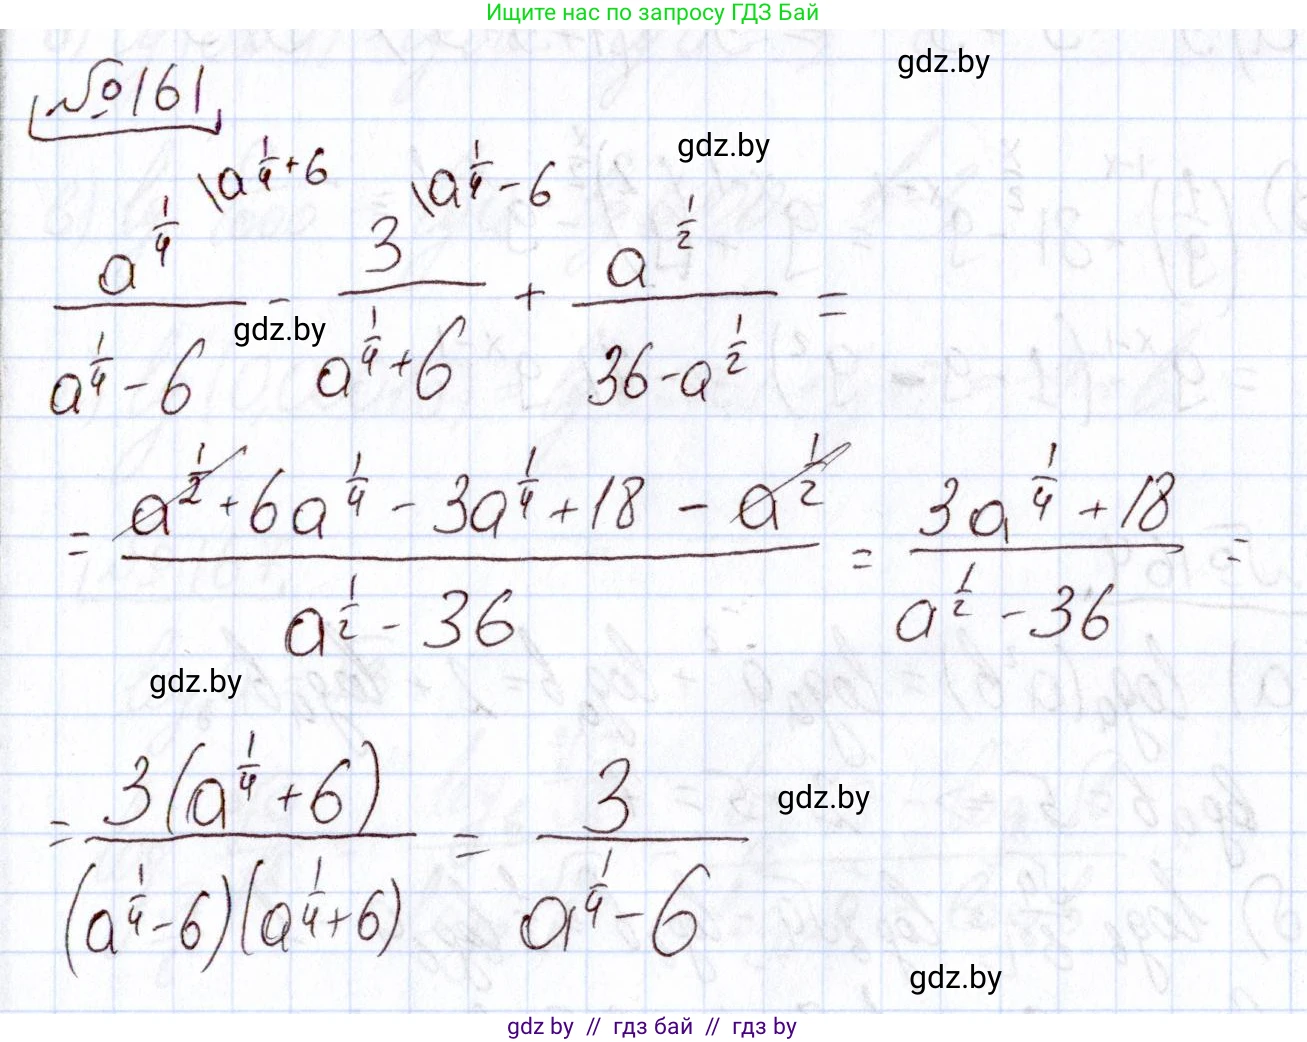 Ищите нас по запросу ГДЗ Бай
gdz.by
№161
gdz.by
\a^{1/4}+6 \a^{1/4}-6
a^{1/4}/(a^{1/4}-6) - 3/(a^{1/4}+6) + a^{1/2}/(36-a^{1/2}) =
gdz.by
= (a^{1/2}+6a^{1/4}-3a^{1/4}+18-a^{1/2})/(a^{1/2}-36) = (3a^{1/4}+18)/(a^{1/2}-36) =
gdz.by
= 3(a^{1/4}+6)/((a^{1/4}-6)(a^{1/4}+6)) = 3/(a^{1/4}-6)
gdz.by
gdz.by
gdz by // гдз бай // гдз by